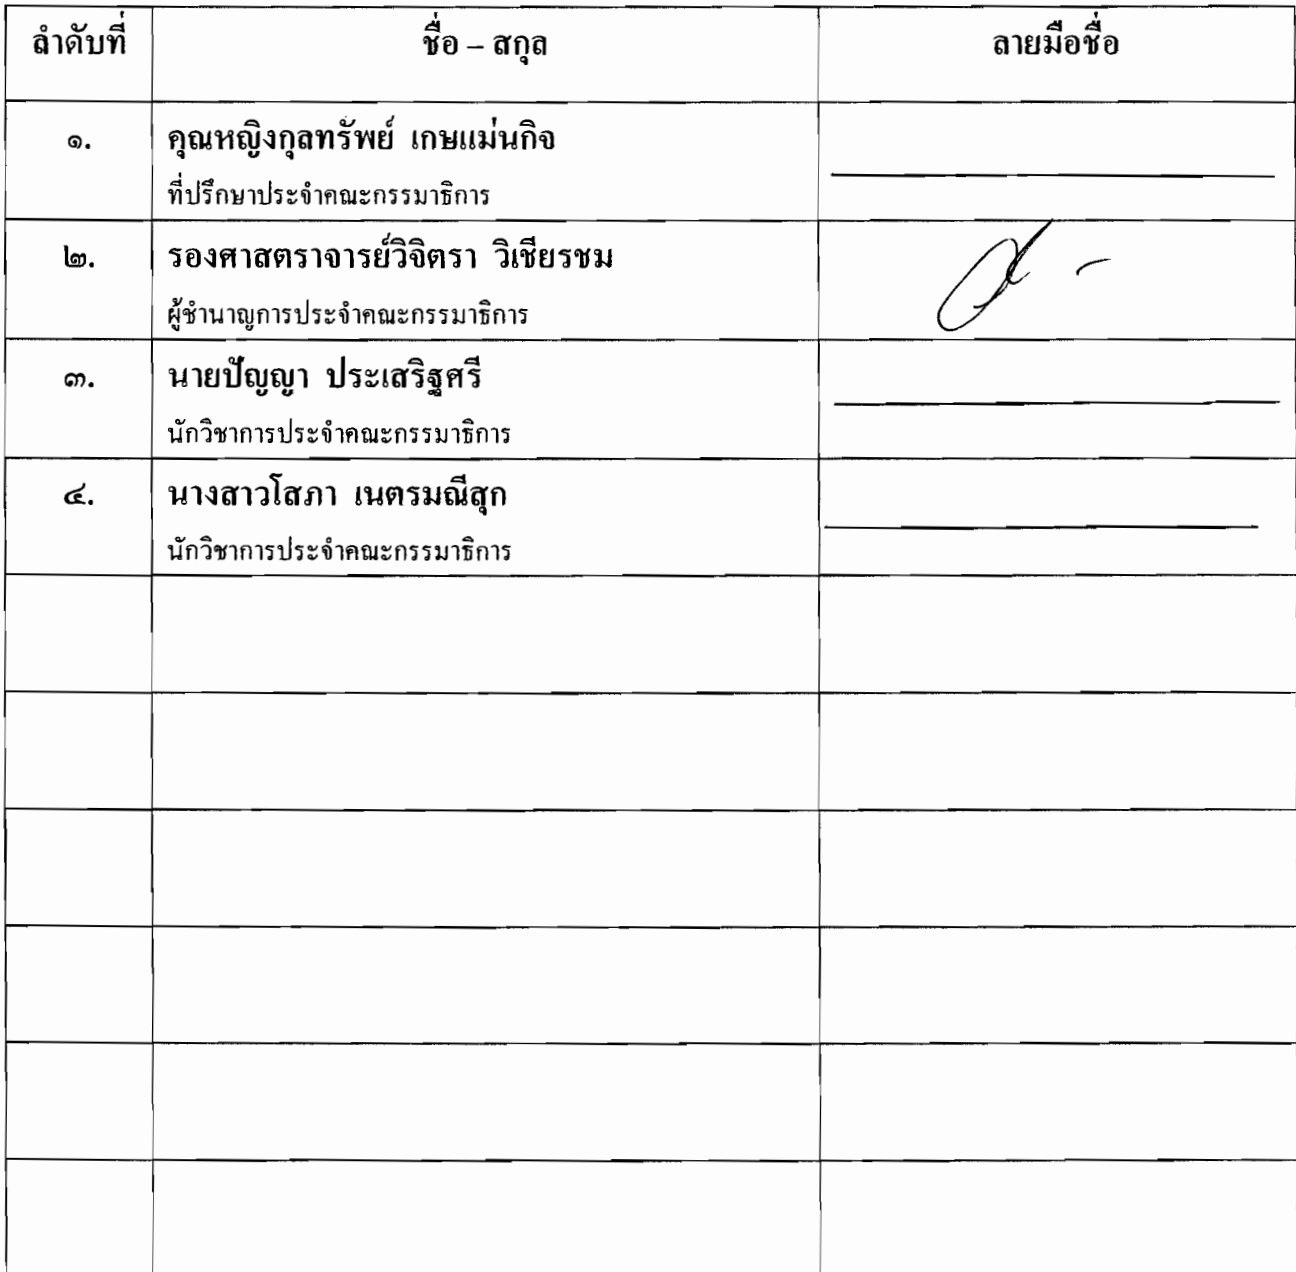 ลำดับที่ ชื่อ – สกุล ลายมือชื่อ
๑. คุณหญิงกุลทรัพย์ เกษแม่นกิจ
ที่ปรึกษาประจำคณะกรรมาธิการ
๒. รองศาสตราจารย์วิจิตรา วิเชียรชม
ผู้ชำนาญการประจำคณะกรรมาธิการ
๓. นายปัญญา ประเสริฐศรี
นักวิชาการประจำคณะกรรมาธิการ
๔. นางสาวโสภา เนตรมณีสุก
นักวิชาการประจำคณะกรรมาธิการ